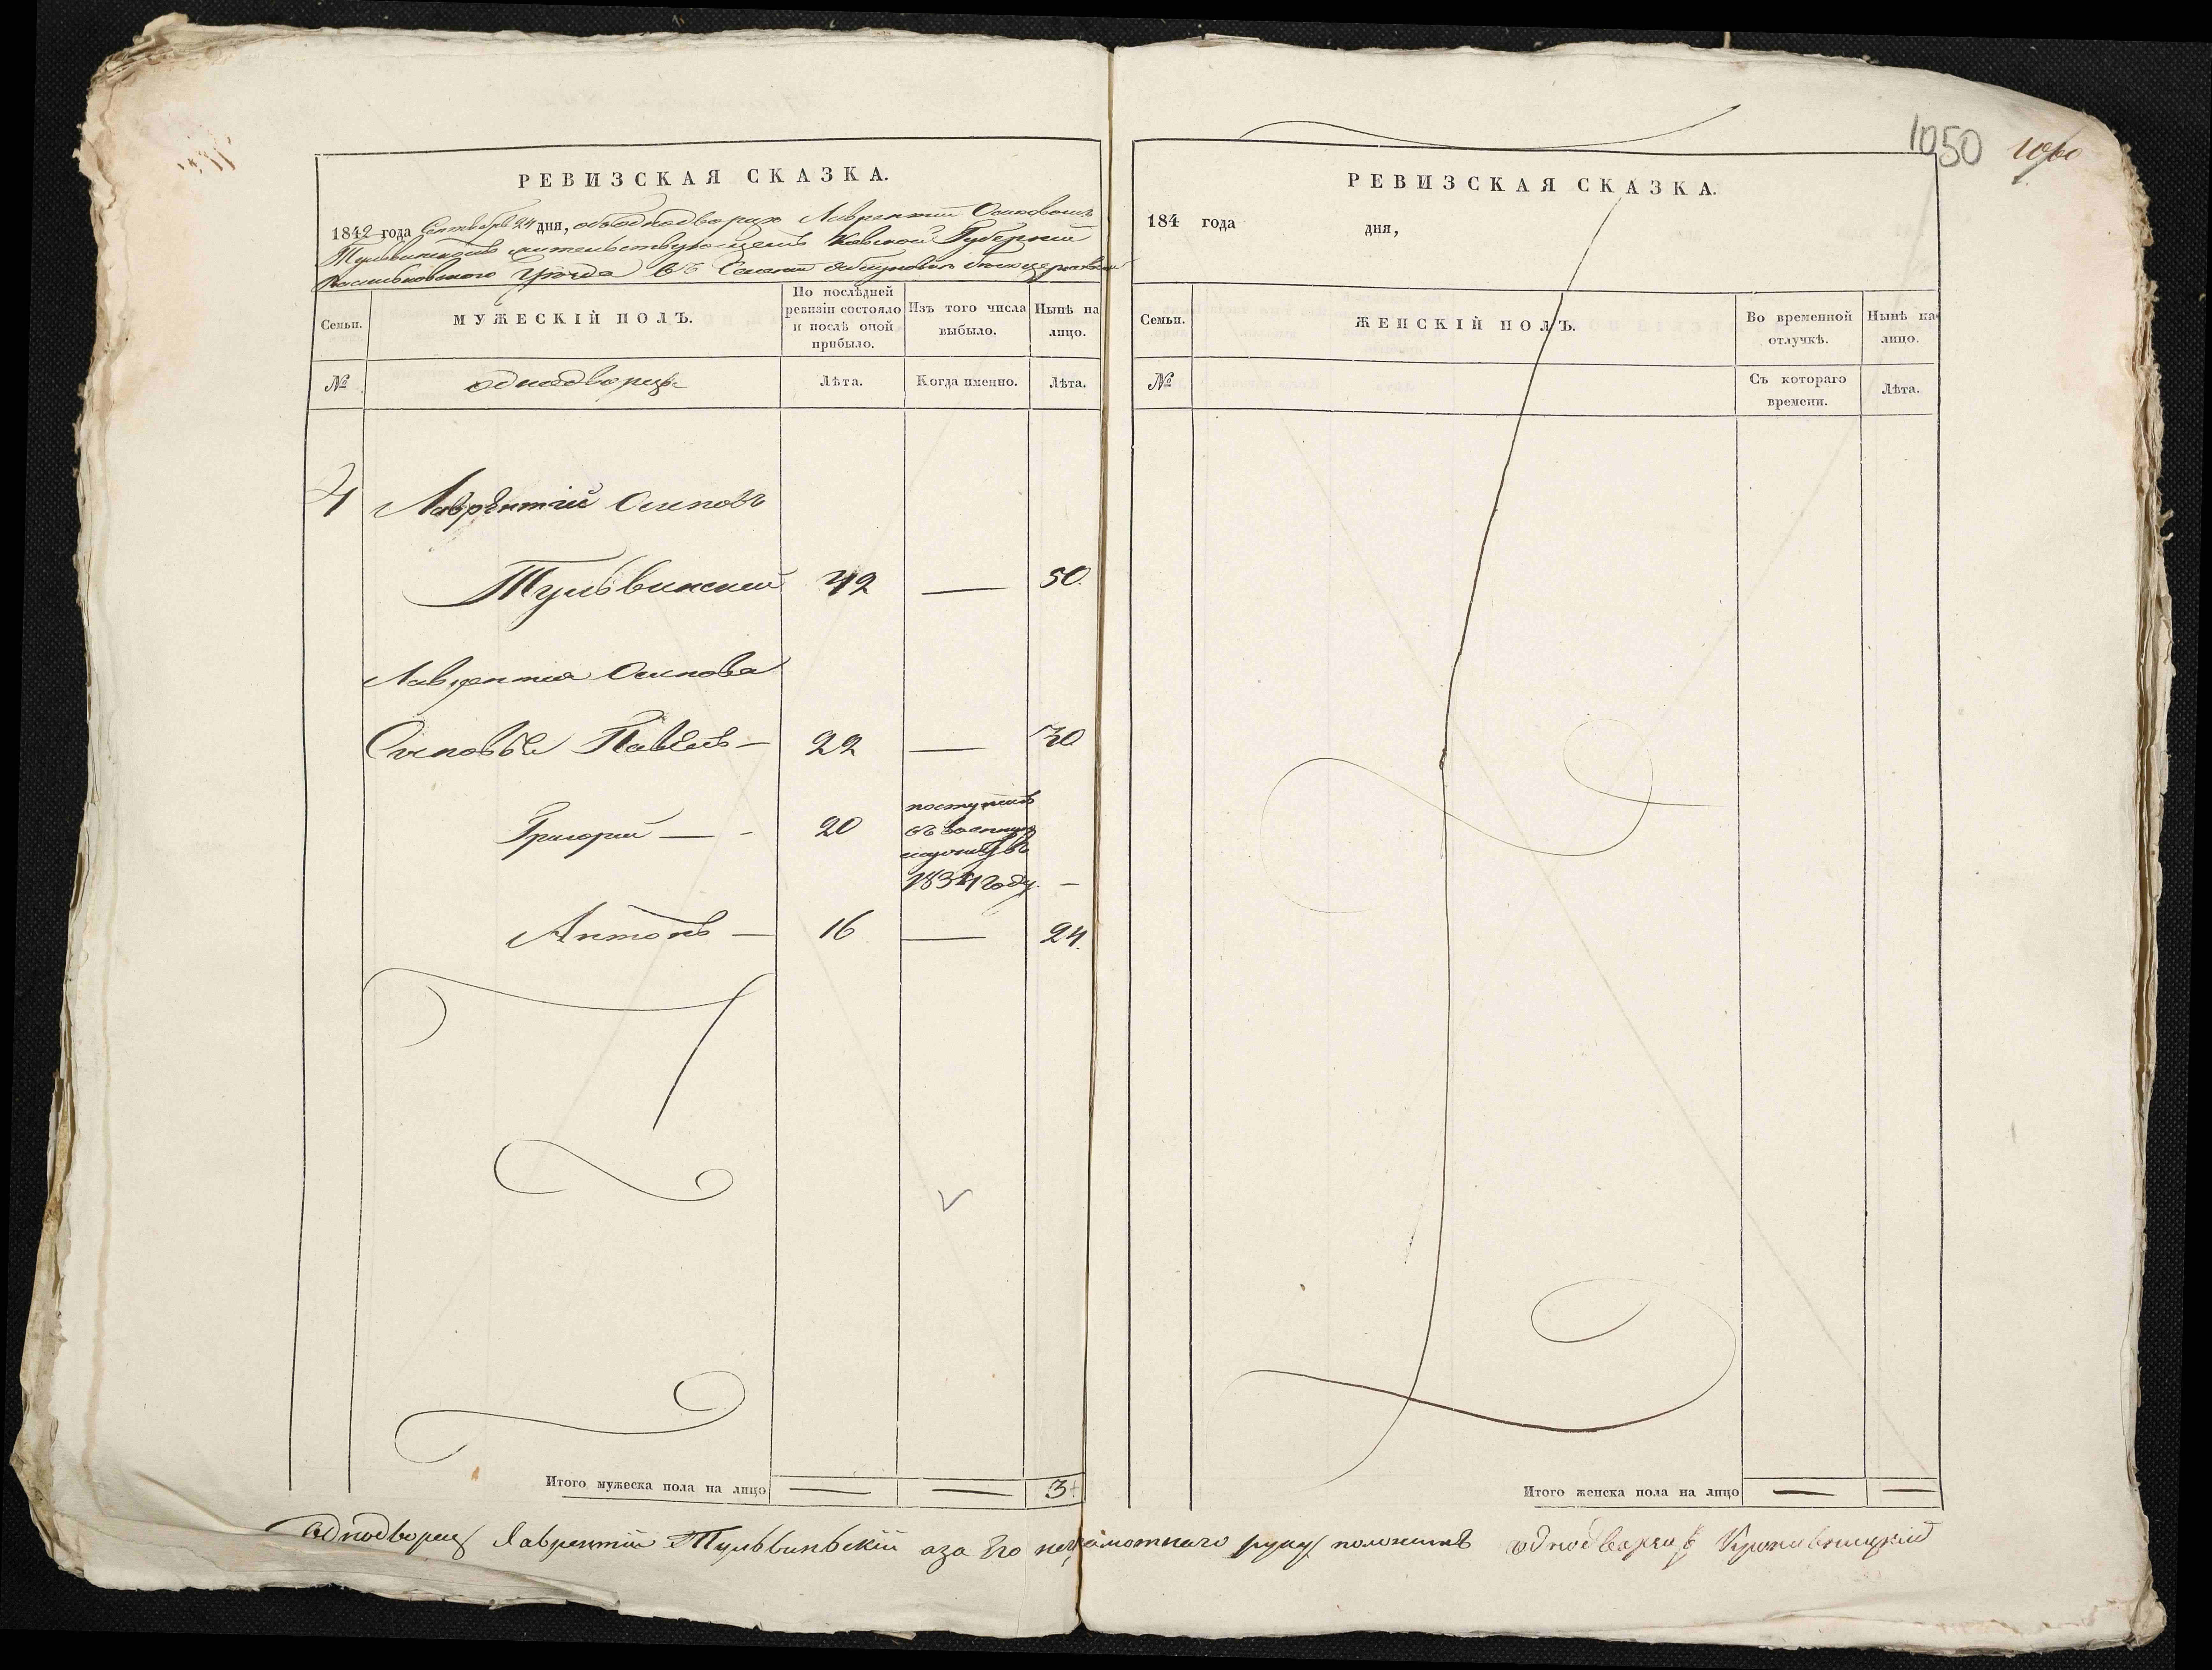 1050 1060
РЕВИЗСКАЯ СКАЗКА.
1842 года Сентября 24 дня, объ однодворцѣ Лаврентіи Осиповомъ
Тульвинскомъ жительствующемъ Кіевской Губерніи
Васильковскаго Уѣзда въ Селеніи
Семьи. МУЖЕСКІЙ ПОЛЪ. По послѣдней ревизіи состояло и послѣ оной прибыло. Изъ того числа выбыло. Нынѣ на лицо.
№ однодворцы Лѣта. Когда именно. Лѣта.
4 Лаврентій Осиповъ
Тульвинский 42 — 50.
Лаврентия Осипова
Сыновья Павелъ — 22 — 30
Григорий — - 20 поступилъ
въ военную
службу въ
1834 году. —
Антонъ — 16 — 24.
Итого мужеска пола на лицо 3
РЕВИЗСКАЯ СКАЗКА.
184 года дня,
Семьи. ЖЕНСКІЙ ПОЛЪ. Во временной отлучкѣ. Нынѣ на лицо.
№ Съ котораго времени. Лѣта.
Итого женска пола на лицо
Однодворец Лаврентій Тульвиньскій аза Его неграмотнаго руку положилъ однодворецъ Кропивницкій